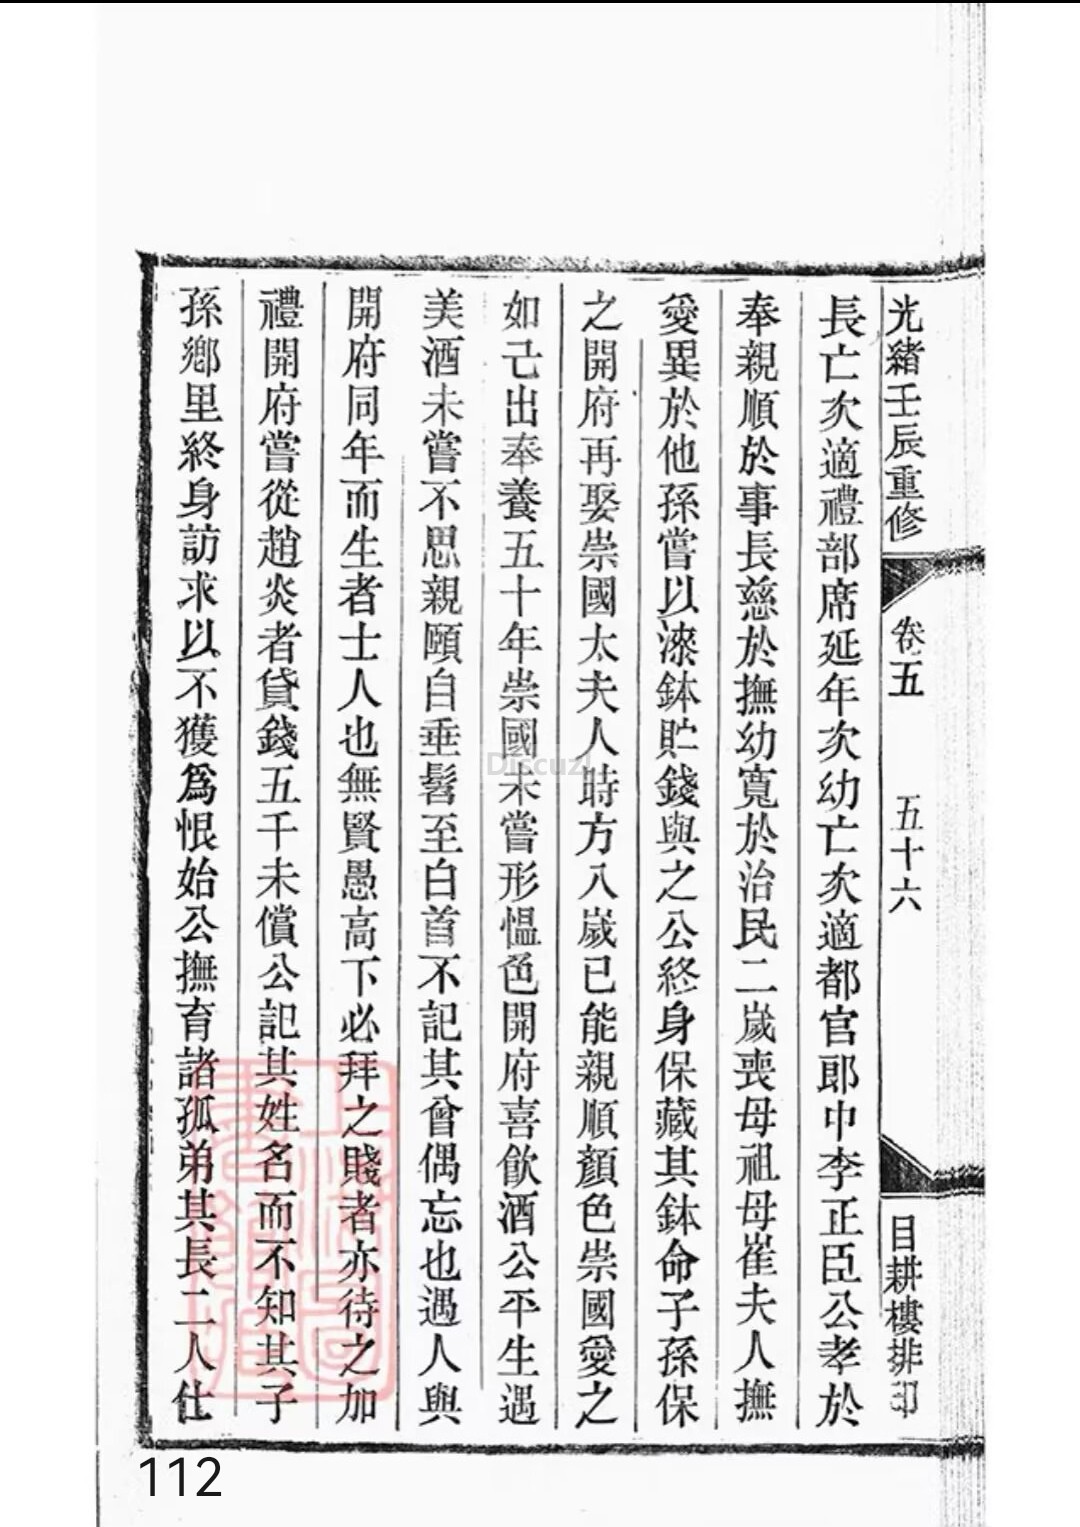 光緒壬辰重修 卷五 五十六 目耕樓排印
長亡次適禮部席延年次幼亡次適都官郎中李正臣公孝於
奉親順於事長慈於撫幼寬於治民二歲喪母祖母崔夫人撫
愛異於他孫嘗以漆鉢貯錢與之公終身保藏其鉢命子孫保
之開府再娶崇國太夫人時方八歲已能親順顏色崇國愛之
如己出奉養五十年崇國未嘗形慍色開府喜飲酒公平生遇
美酒未嘗不思親頤自垂髫至白首不記其曾偶忘也遇人與
開府同年而生者士人也無賢愚高下必拜之賤者亦待之加
禮開府嘗從趙炎者貸錢五千未償公記其姓名而不知其子
孫鄉里終身訪求以不獲爲恨始公撫育諸孤弟其長二人仕
上海圖書館藏
Discuz!
112